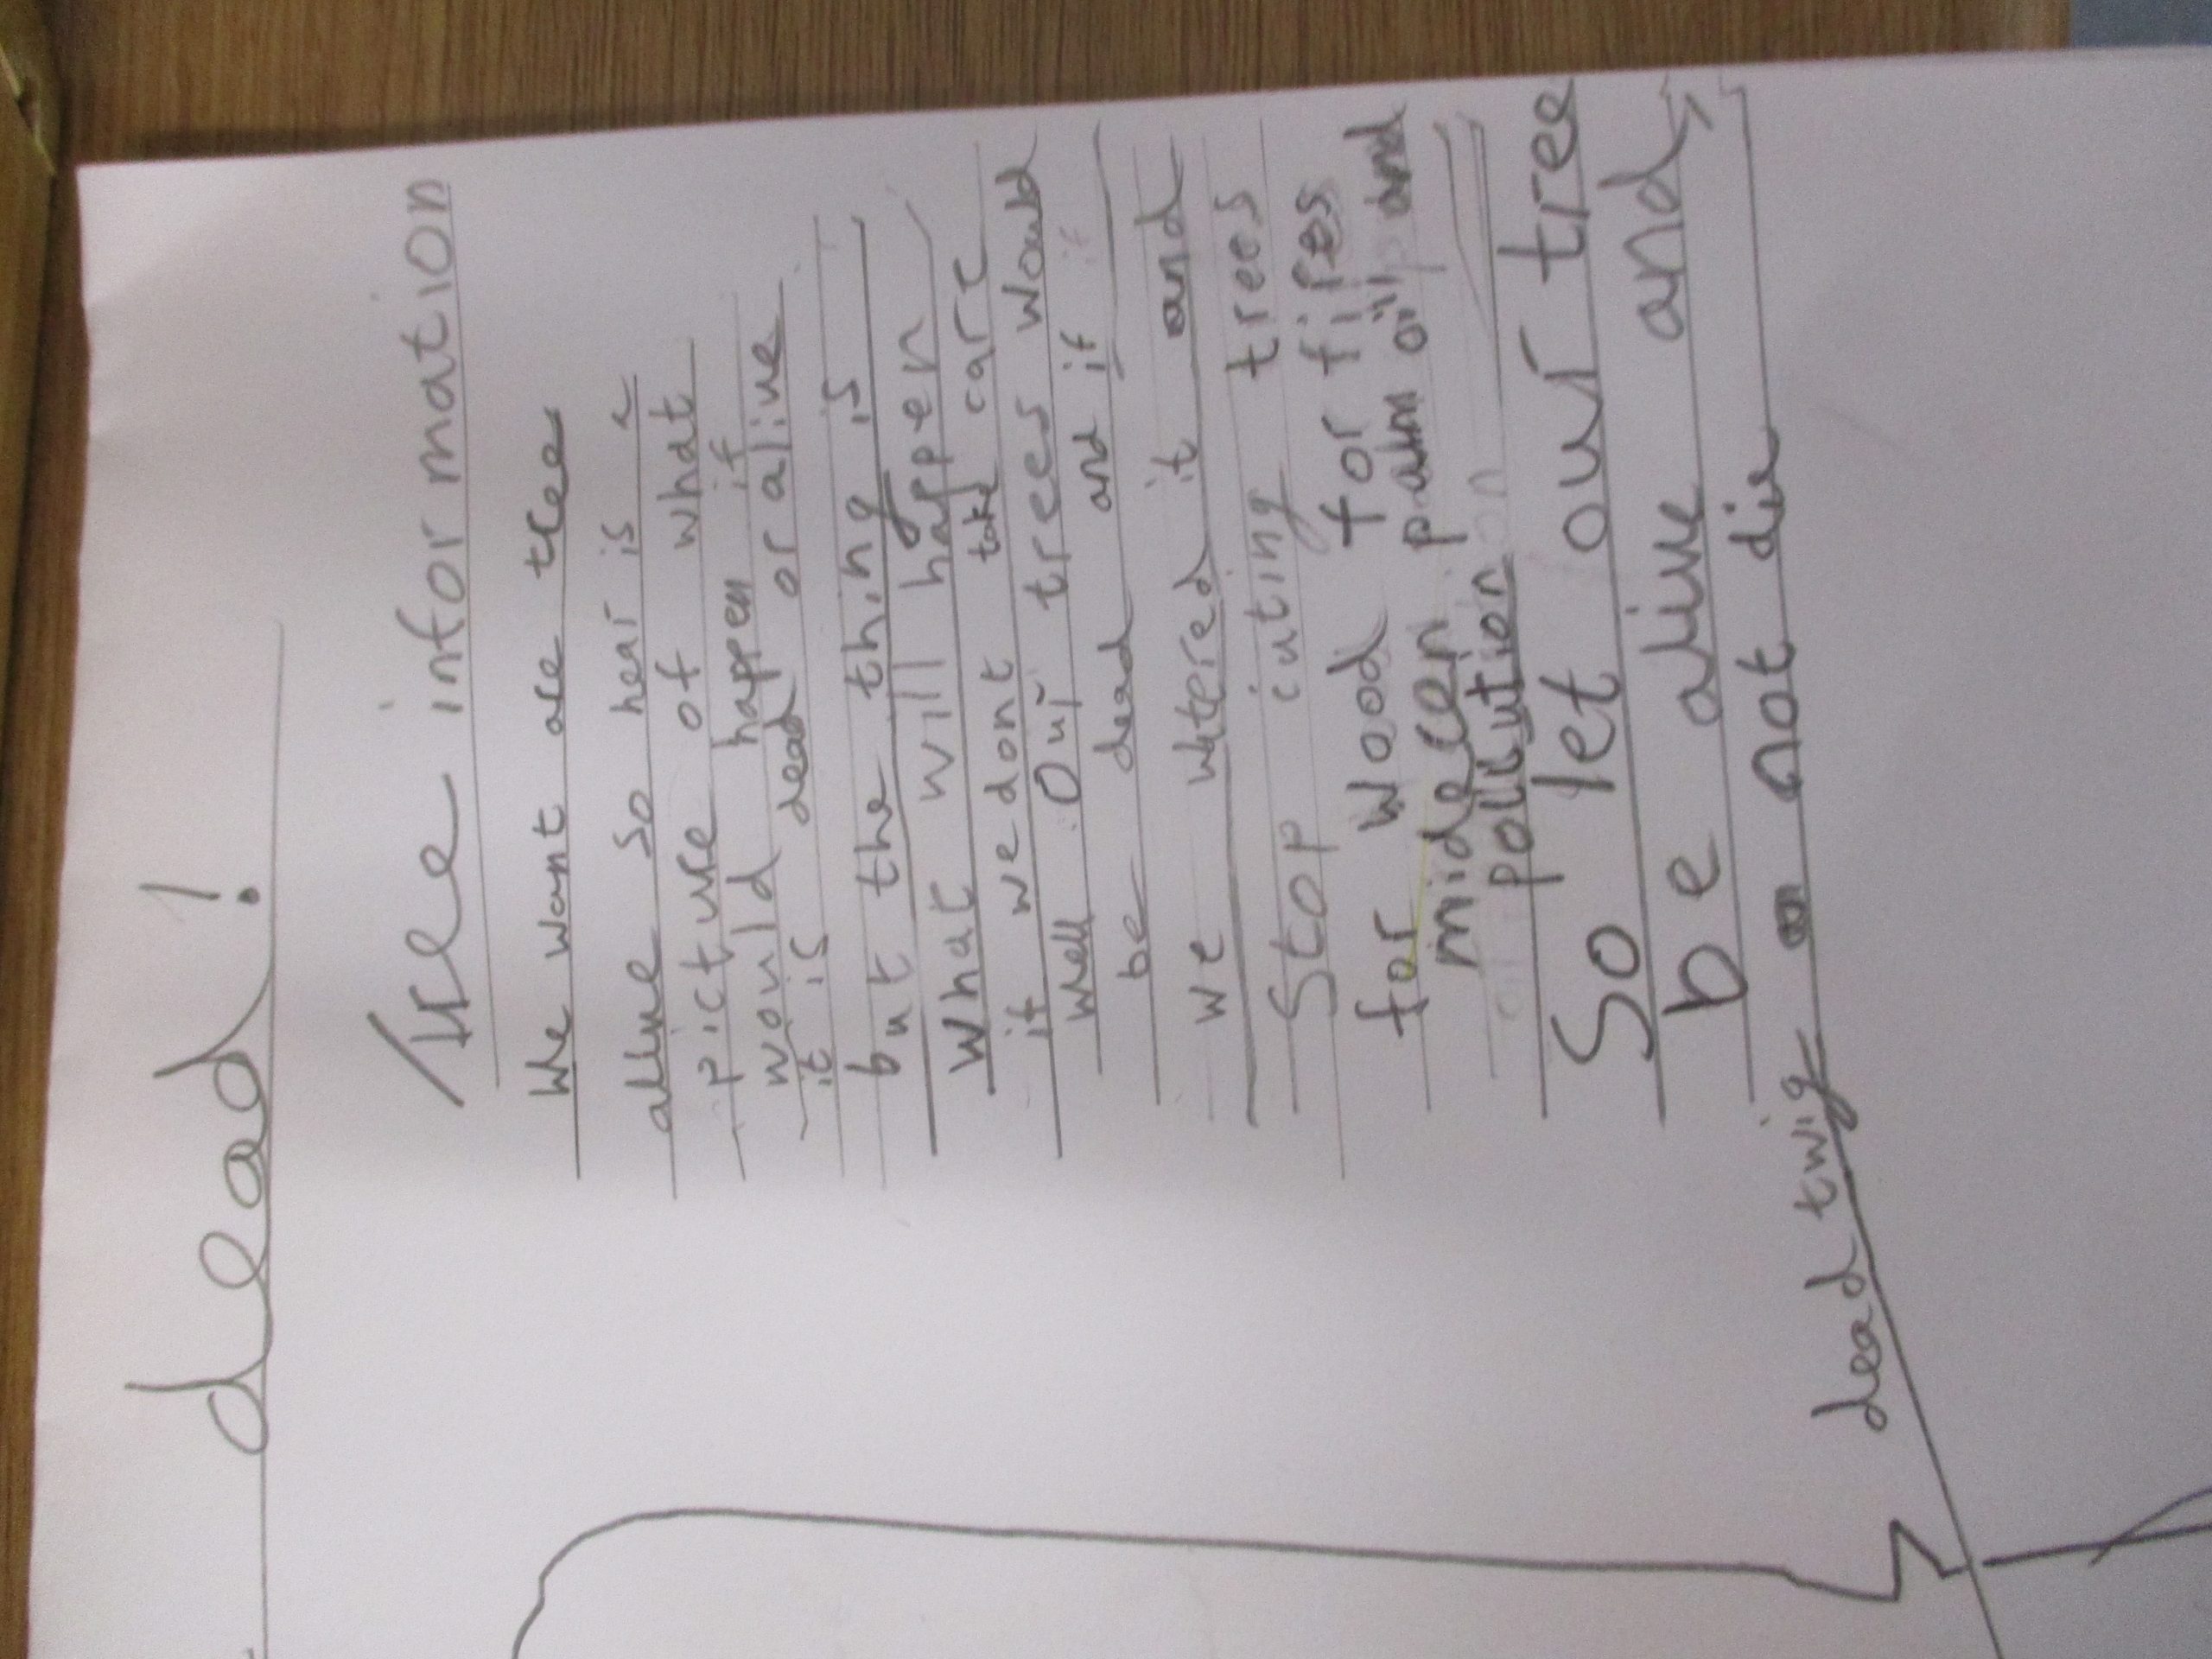 dead!
The information
We want are tree
alive so hear is a
picture of what
would happen if
it is dead or alive
but the thing is
What will happen
if we dont take care
Well Our trees would
be dead and if
we watered it and
Stop cuting trees
for wood for fires
midecen palm oil and
pollution
So let our tree
be alive and
not die
dead twig